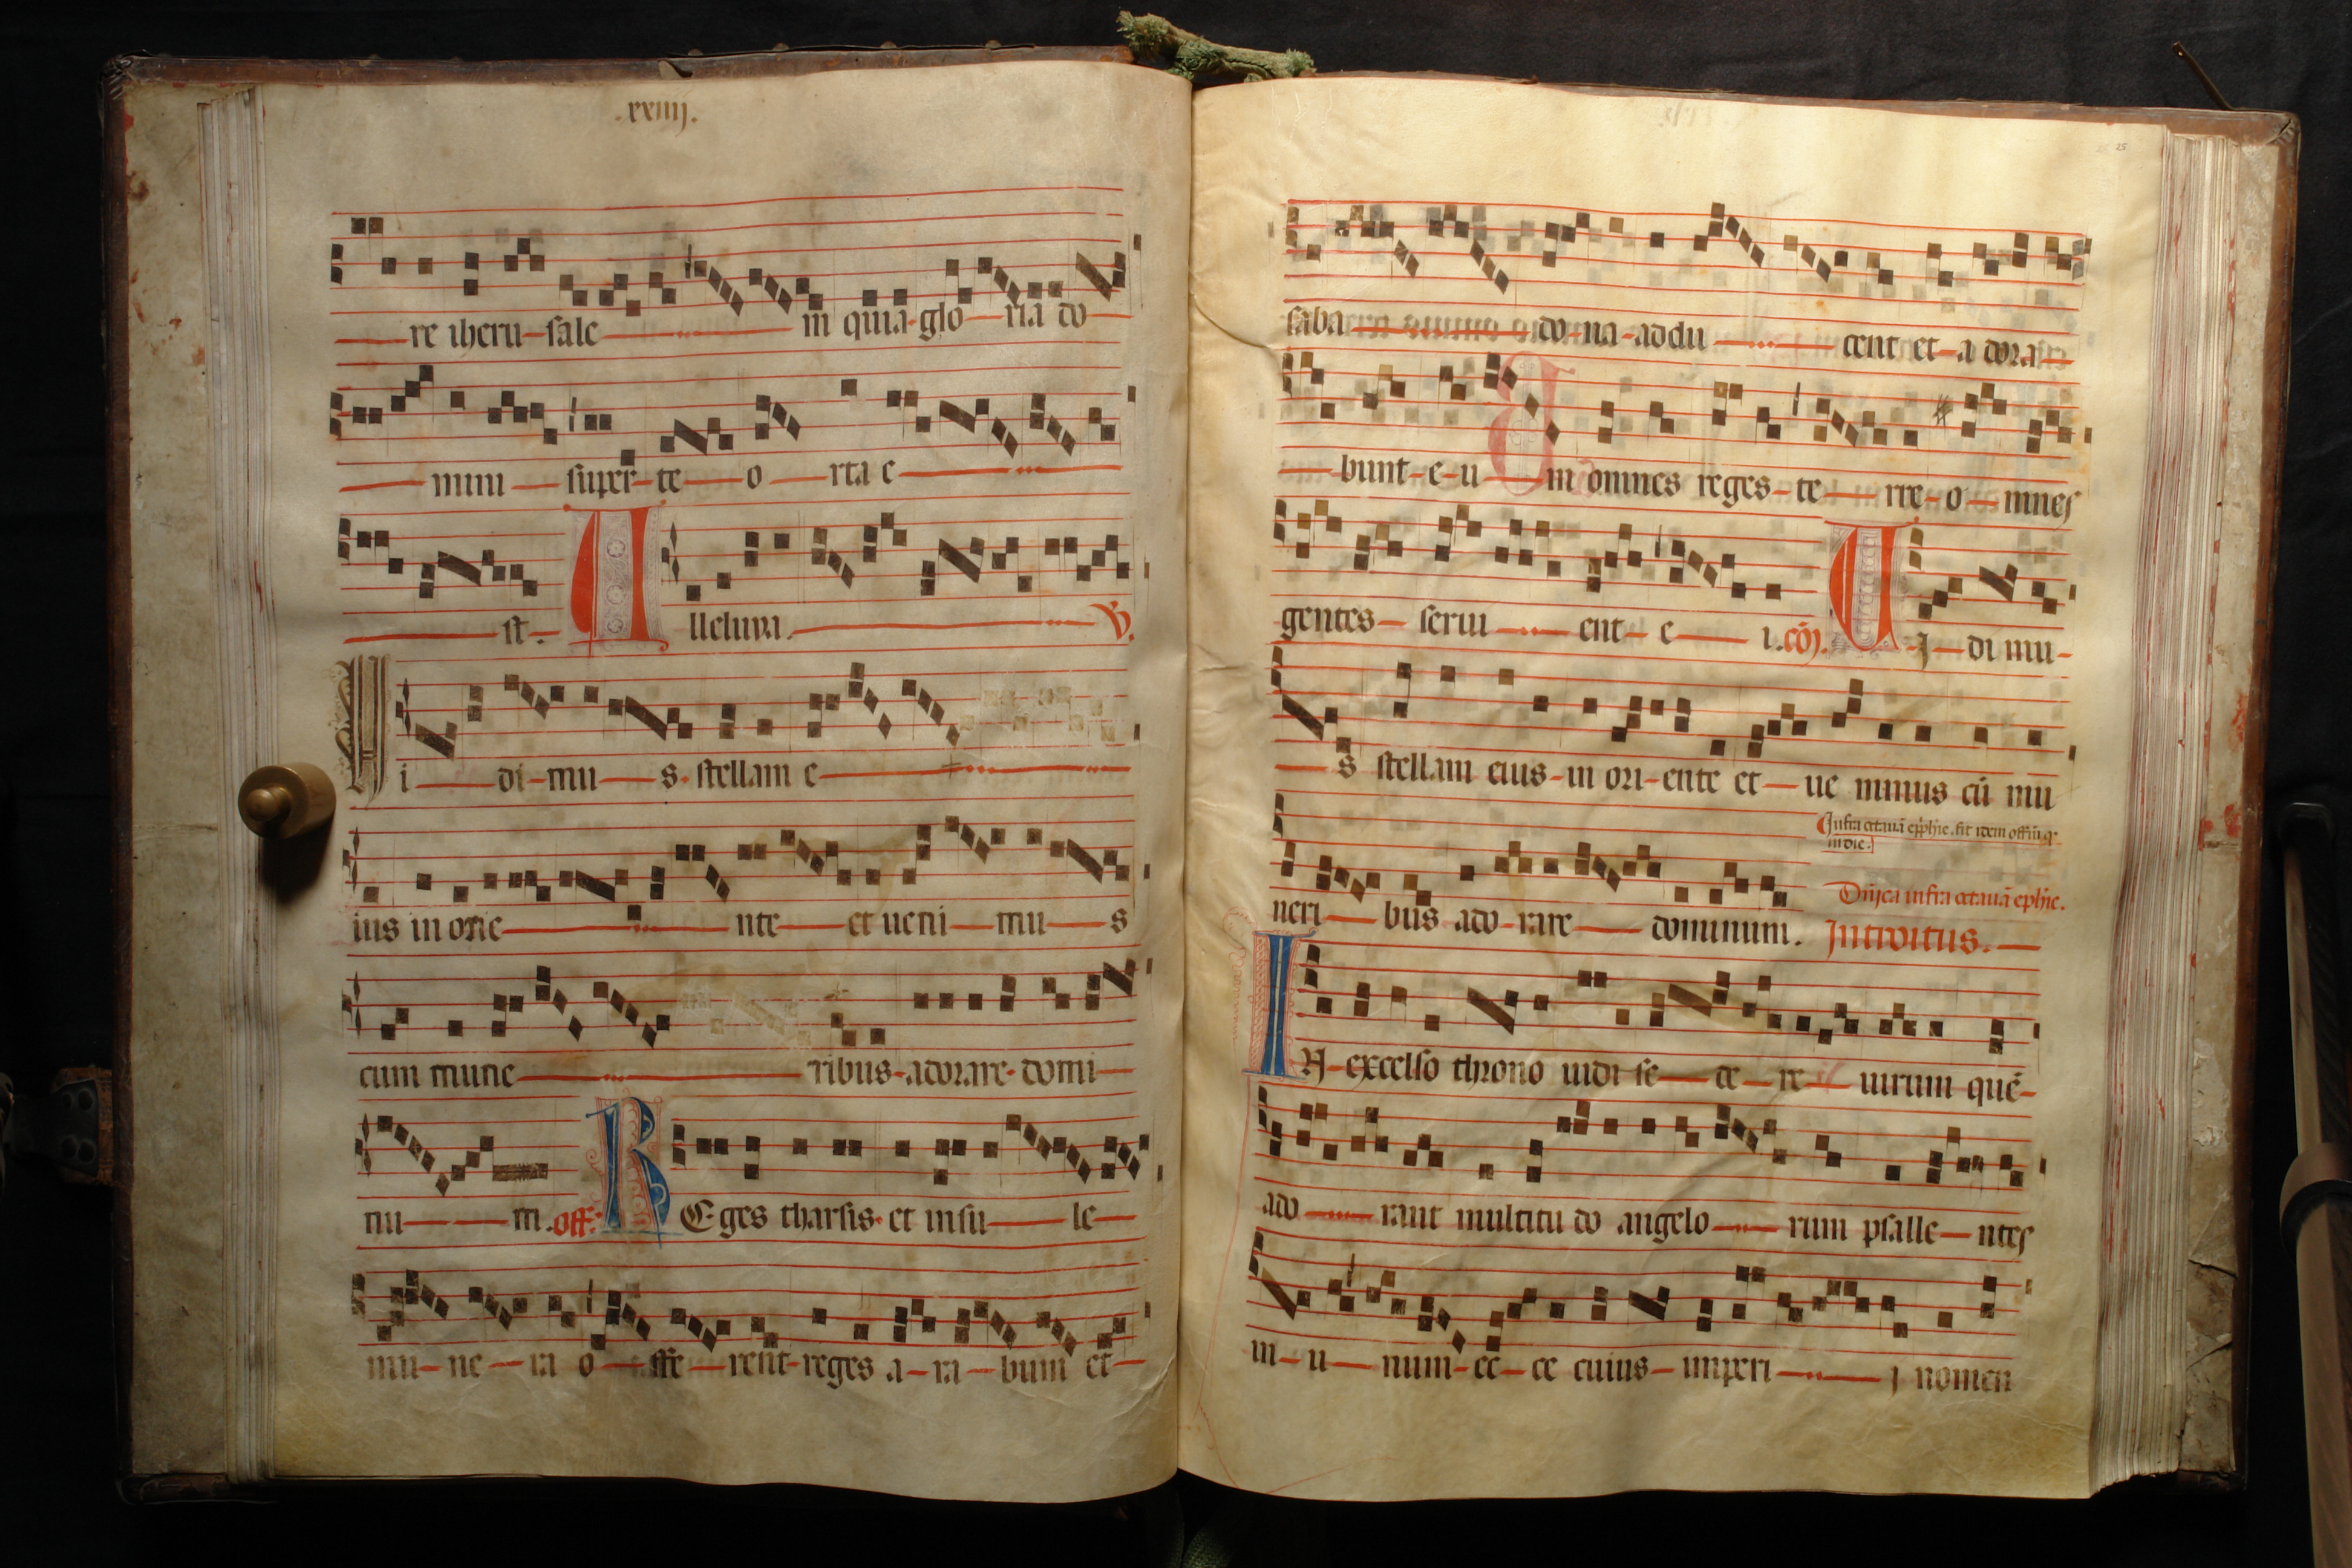 .xxiiij.
re iheru-sale m quia glo-ria do
mini super te o rta e
st. Alleluya. V.
Vi di-mu s stellam e
ius in orie nte et ueni mu s
cum mune ribus adorare domi
nu m. off. REges tharsis et insu le
mu-ne-ra o ffe rent reges a-ra-bum et
25
saba do-na-addu cent et a dora
bunt-e-u m omnes reges-te rre-o mnes
gentes serui ent-e i. cōj. UJ di mu-
s stellam eius in ori-ente et ue nimus cū mu
Infra octauā epyphīe. fit idem offīm qͥ
in die.
neri bus ado-rare dominum. Dn̄ica infra octauā ephīe.
Introitus.
IN excelso throno uidi se de re uirum quē-
ado rant multitu do angelo rum psalle ntes
in-u num-ec-ce cuius-imperi j nomen